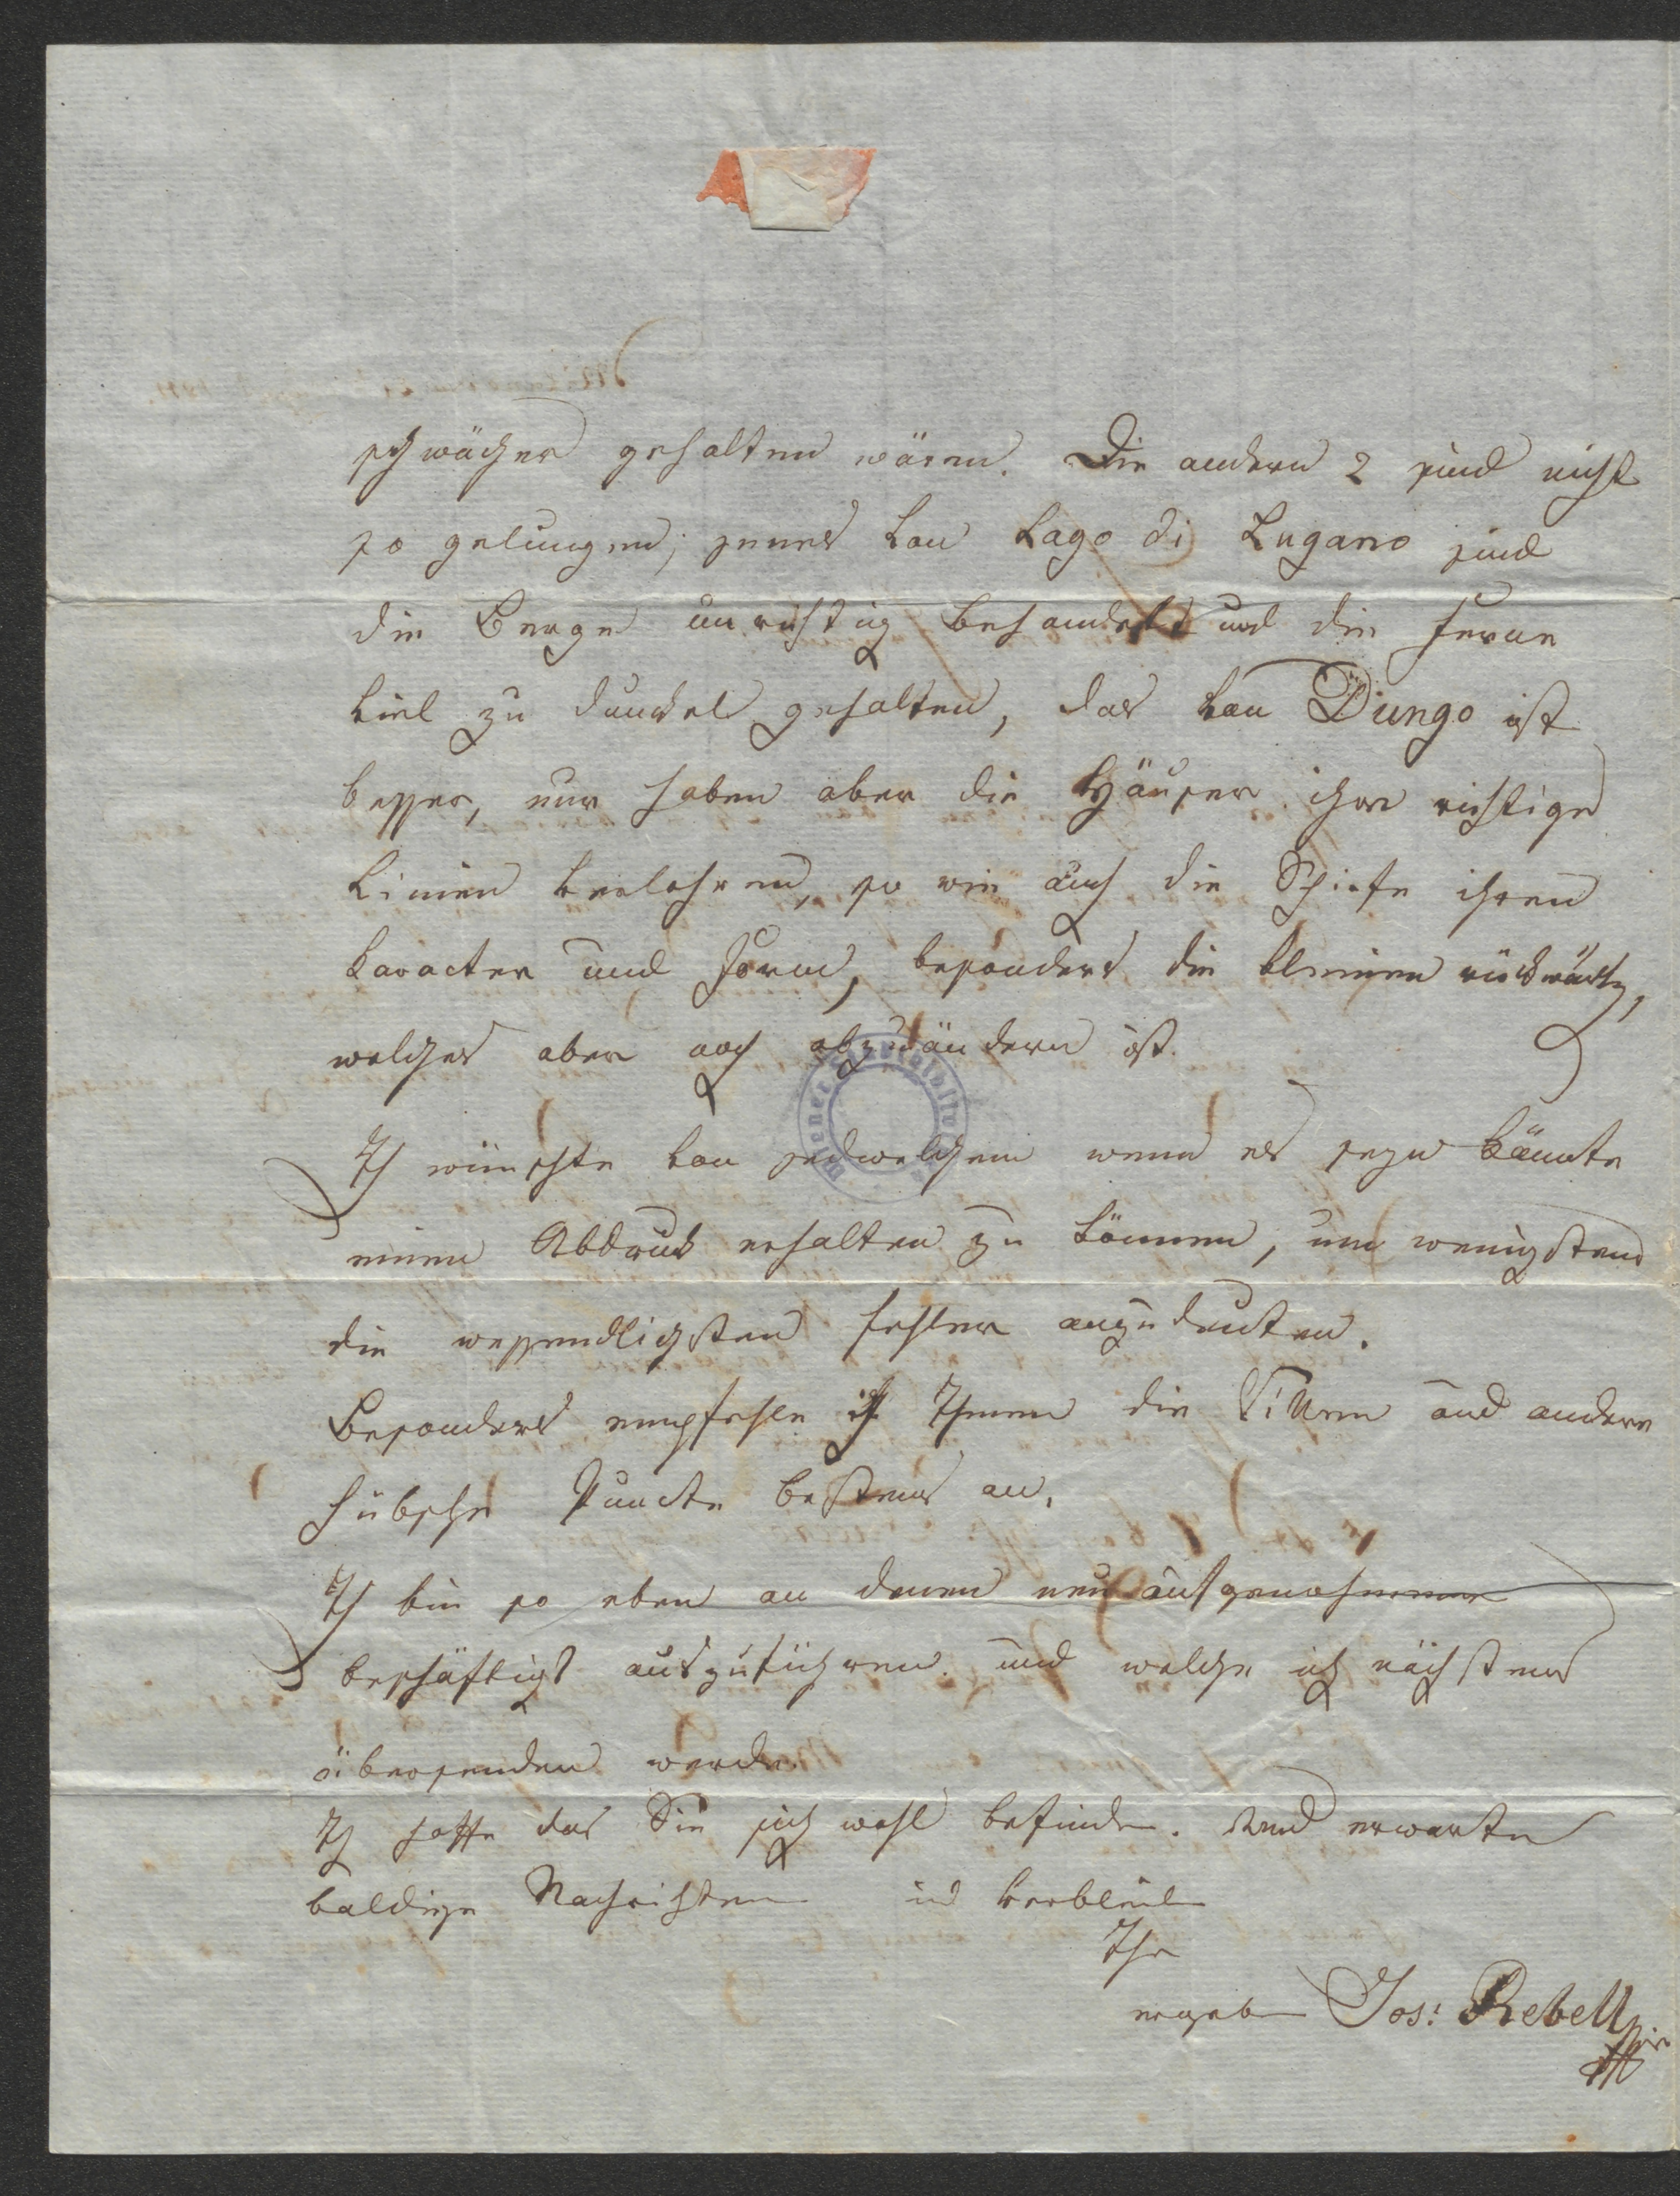 schwächer gehalten wären. Die andern 2 sind nicht
so gelungen; jenes von Lago di Lugano sind
die Berge unrichtig behandelt und die Ferne
viel zu dunckel gehalten, das von Dungo ist
besser, nur haben aber die Häuser ihre richtige
Linien verlohren, so wie auch die Schiefe ihren
Karacter und Form, besonders die kleinen rückwärts,
welches aber noch abzuändern ist.
Ich wünschte von jedwelchem wenn es seyn könnte
einen Abdruck erhalten zu können, um wenigstens
die wessendlichsten Fehler anzudeuten.
Besonders empfehle ich Ihnen die Villen und andere
hübsche Puncte bestens an.
Ich bin so eben an denen neu aufgenohmene
beschäftigt auszuführen und welche ich nächstens
übersenden werde.
Ich hoffe das Sie sich wohl befinden. und erwarte
baldige Nachrichten und verbleibe
Ihr
ergeben Jos: Rebell